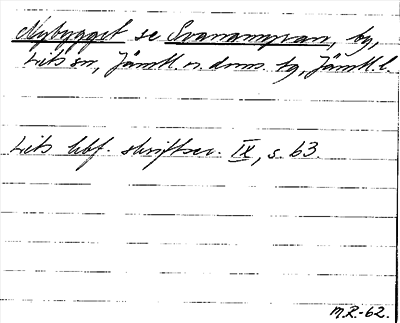 Nybygget se Svanamyran, by,
Lits sn, Jämtl. n. doms. tg, Jämtl. l.
Lits hbf. skriftser. IX, s. 63.
M.R.-62.